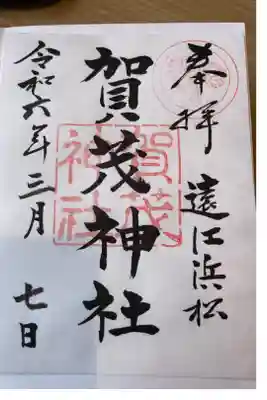 奉拝 遠江浜松
賀茂神社
賀茂神社
令和六年三月 七日